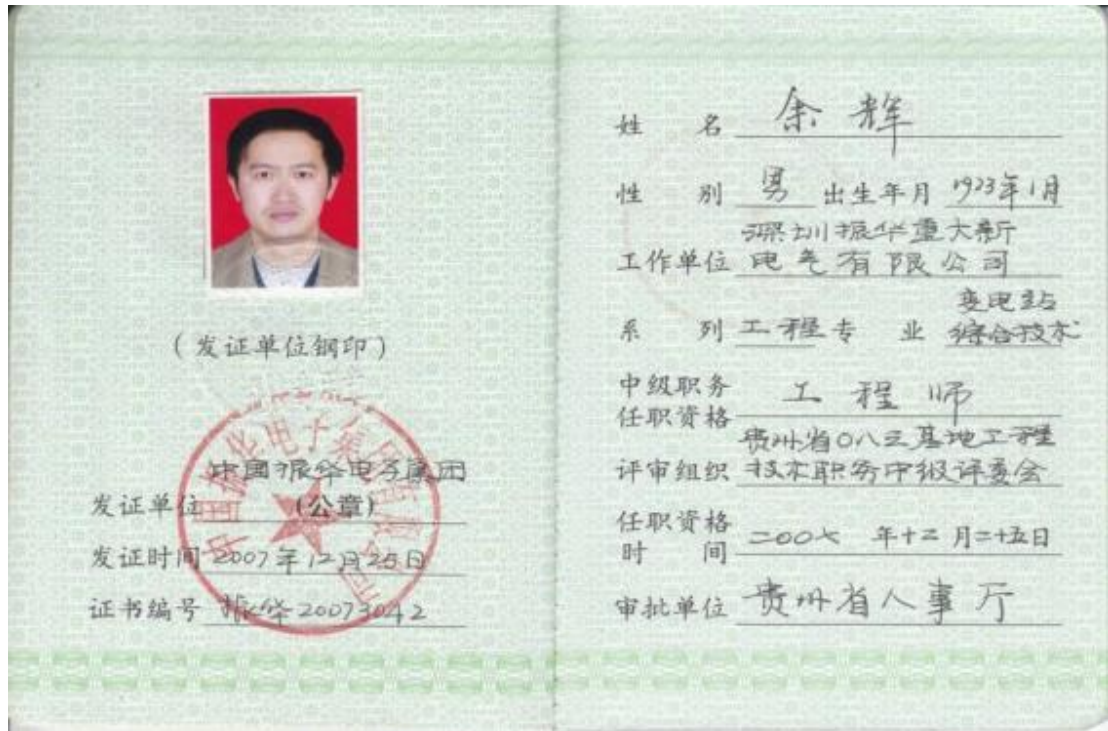 (发证单位钢印)
中国振华电子集团
发证单位 (公章)
发证时间 2007年12月25日
证书编号 振华20073042
姓 名 余辉
性 别 男 出生年月 1973年1月
深圳振华重大新
工作单位 电气有限公司
变电站
系 列 工程 专 业 综合技术
中级职务
任职资格 工程师
贵州省〇八三基地工程
评审组织 技术职务中级评委会
任职资格
时 间 二00七 年十二月二十五日
审批单位 贵州省人事厅